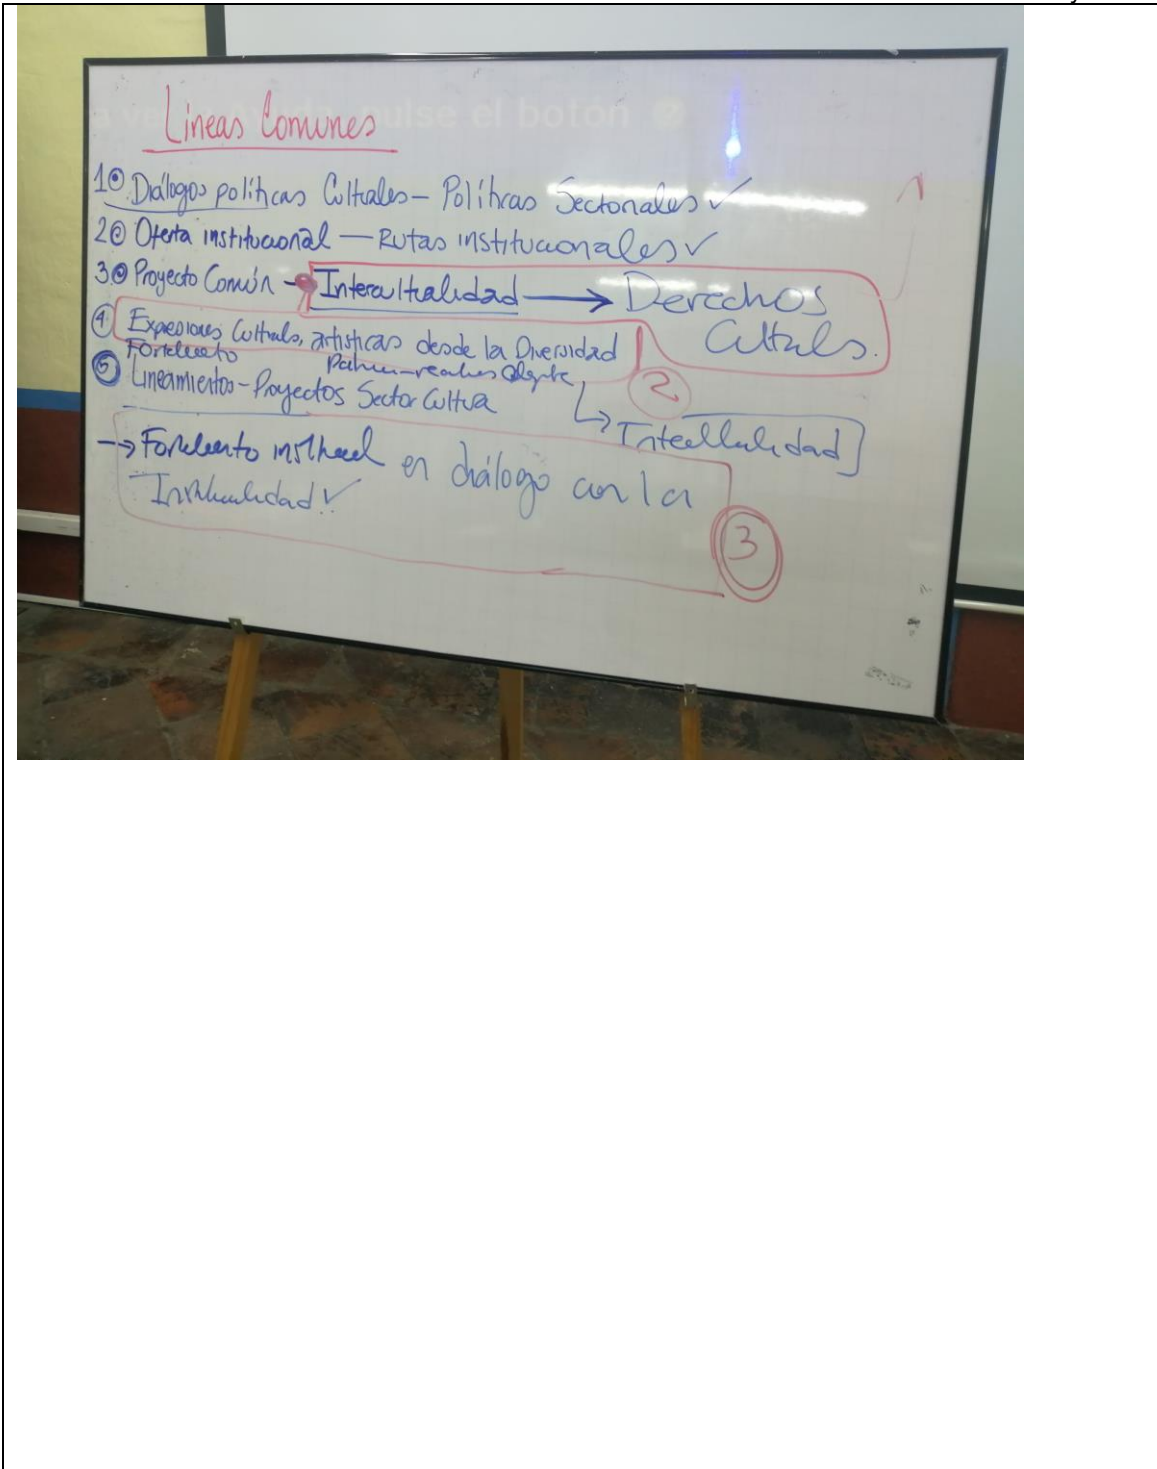 Líneas Comunes
1 Diálogos políticas Culturales - Políticas Sectoriales ✓
2 Oferta institucional — Rutas institucionales ✓
3 Proyecto Común - Interculturalidad → Derechos
Culturales.
4 Expresiones Culturales, artísticas desde la Diversidad
2
5 Lineamientos - Proyectos Sector Cultura
→ Interculturalidad]
→ Fortalecimiento institucional en diálogo con la
Institucionalidad ✓
3
a ve Ayuda, pulse el botón